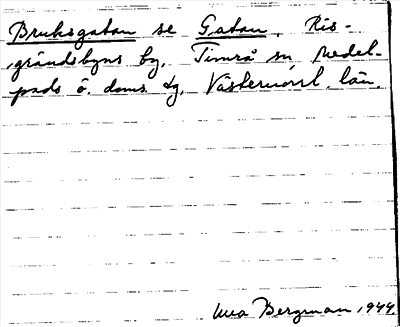 Bruksgatan se Gatan, Ris-
grändsbyns by, Timrå sn Medel-
pads ö. doms. tg, Västernorrl. län.
Bergman 1944